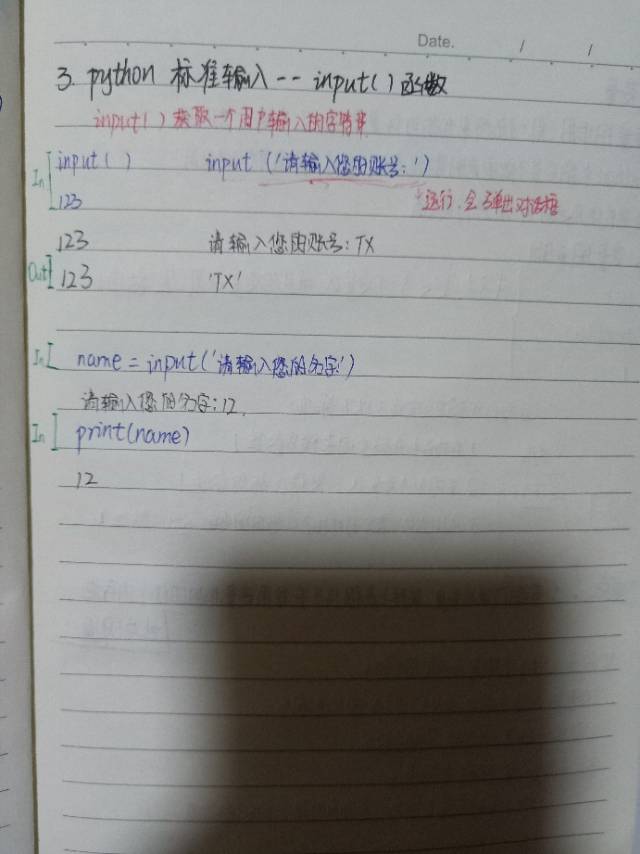 Date. / /
3. python 标准输入--input()函数
input()获取一个用户输入的字符串
In [ input() input('请输入您的账号:')
123 运行.会弹出对话框
123 请输入您的账号:TX
Out] 123 'TX'
In [ name = input('请输入您的名字:')
请输入您的名字:12
In ] print(name)
12